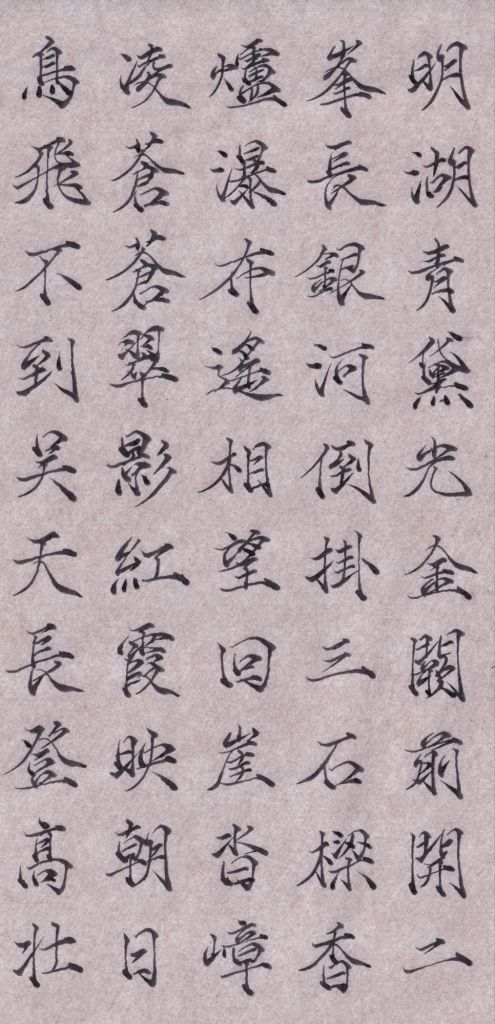 明湖青黛光金闕前開二
峯長銀河倒掛三石樑香
爐瀑布遙相望回崖沓嶂
凌蒼蒼翠影紅霞映朝日
鳥飛不到吴天長登高壯